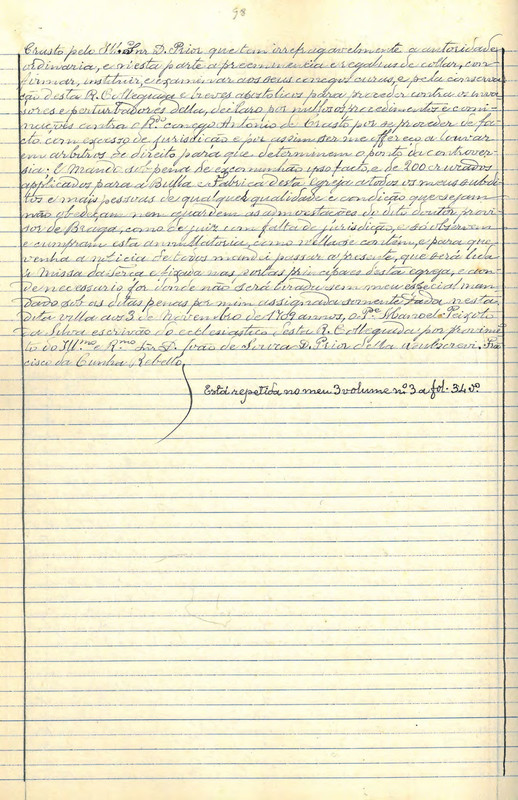 98
Crasto pelo Ill.mo Snr D. Prior que tem irrefragavelmente a autoridade
ordinaria, e n'esta parte a preeminencia e regalias de collar, con-
firmar, instituir, e examinar aos seus conegos curas, e pela conserva-
ção desta R. Collegiada e breves apostolicos para proceder contra os inva-
sores e perturbadores della, declaro por nullos os procedimentos e comi-
nações contra o R.do conego Antonio de Crasto por se proceder de fa-
cto com excesso de jurisdição e por assim ser me offereço a louvar
em arbitros de direito para que determinem o ponto da controver-
sia. E mando sob pena de excomunhão ipso facto, e de 200 cruzados
applicados para a Bulla e Fabrica desta Igreja a todos os meus subdi-
tos e mais pessoas de qualquer qualidade e condição que sejam
não obedeçam nem guardem as admoestações do dito doutor provi-
sor de Braga, como de juiz com falta de jurisdição, e só observem
e cumpram esta annullatoria, como n'ella se contém, e para que
venha a noticia de todos mandei passar a presente, que será lida
á Missa da terça e fixada nas portas principaes desta egreja, e on-
de necessario for d'onde não será tirada sem meu especial man-
dado sob as ditas penas por mim assignada somente. Dada nesta
dita villa aos 3 de Novembro de 1709 annos, o P.e Manoel Peixoto
da Silva escrivão do ecclesiastico desta R. Collegiada por provimen-
to do Ill.mo e R.mo Snr D. João de Sousa D. Prior della a subscrevi. Fran-
cisco da Cunha Rebello
Está repetida no meu 3 volume n.º 3 a fol. 34 v.º